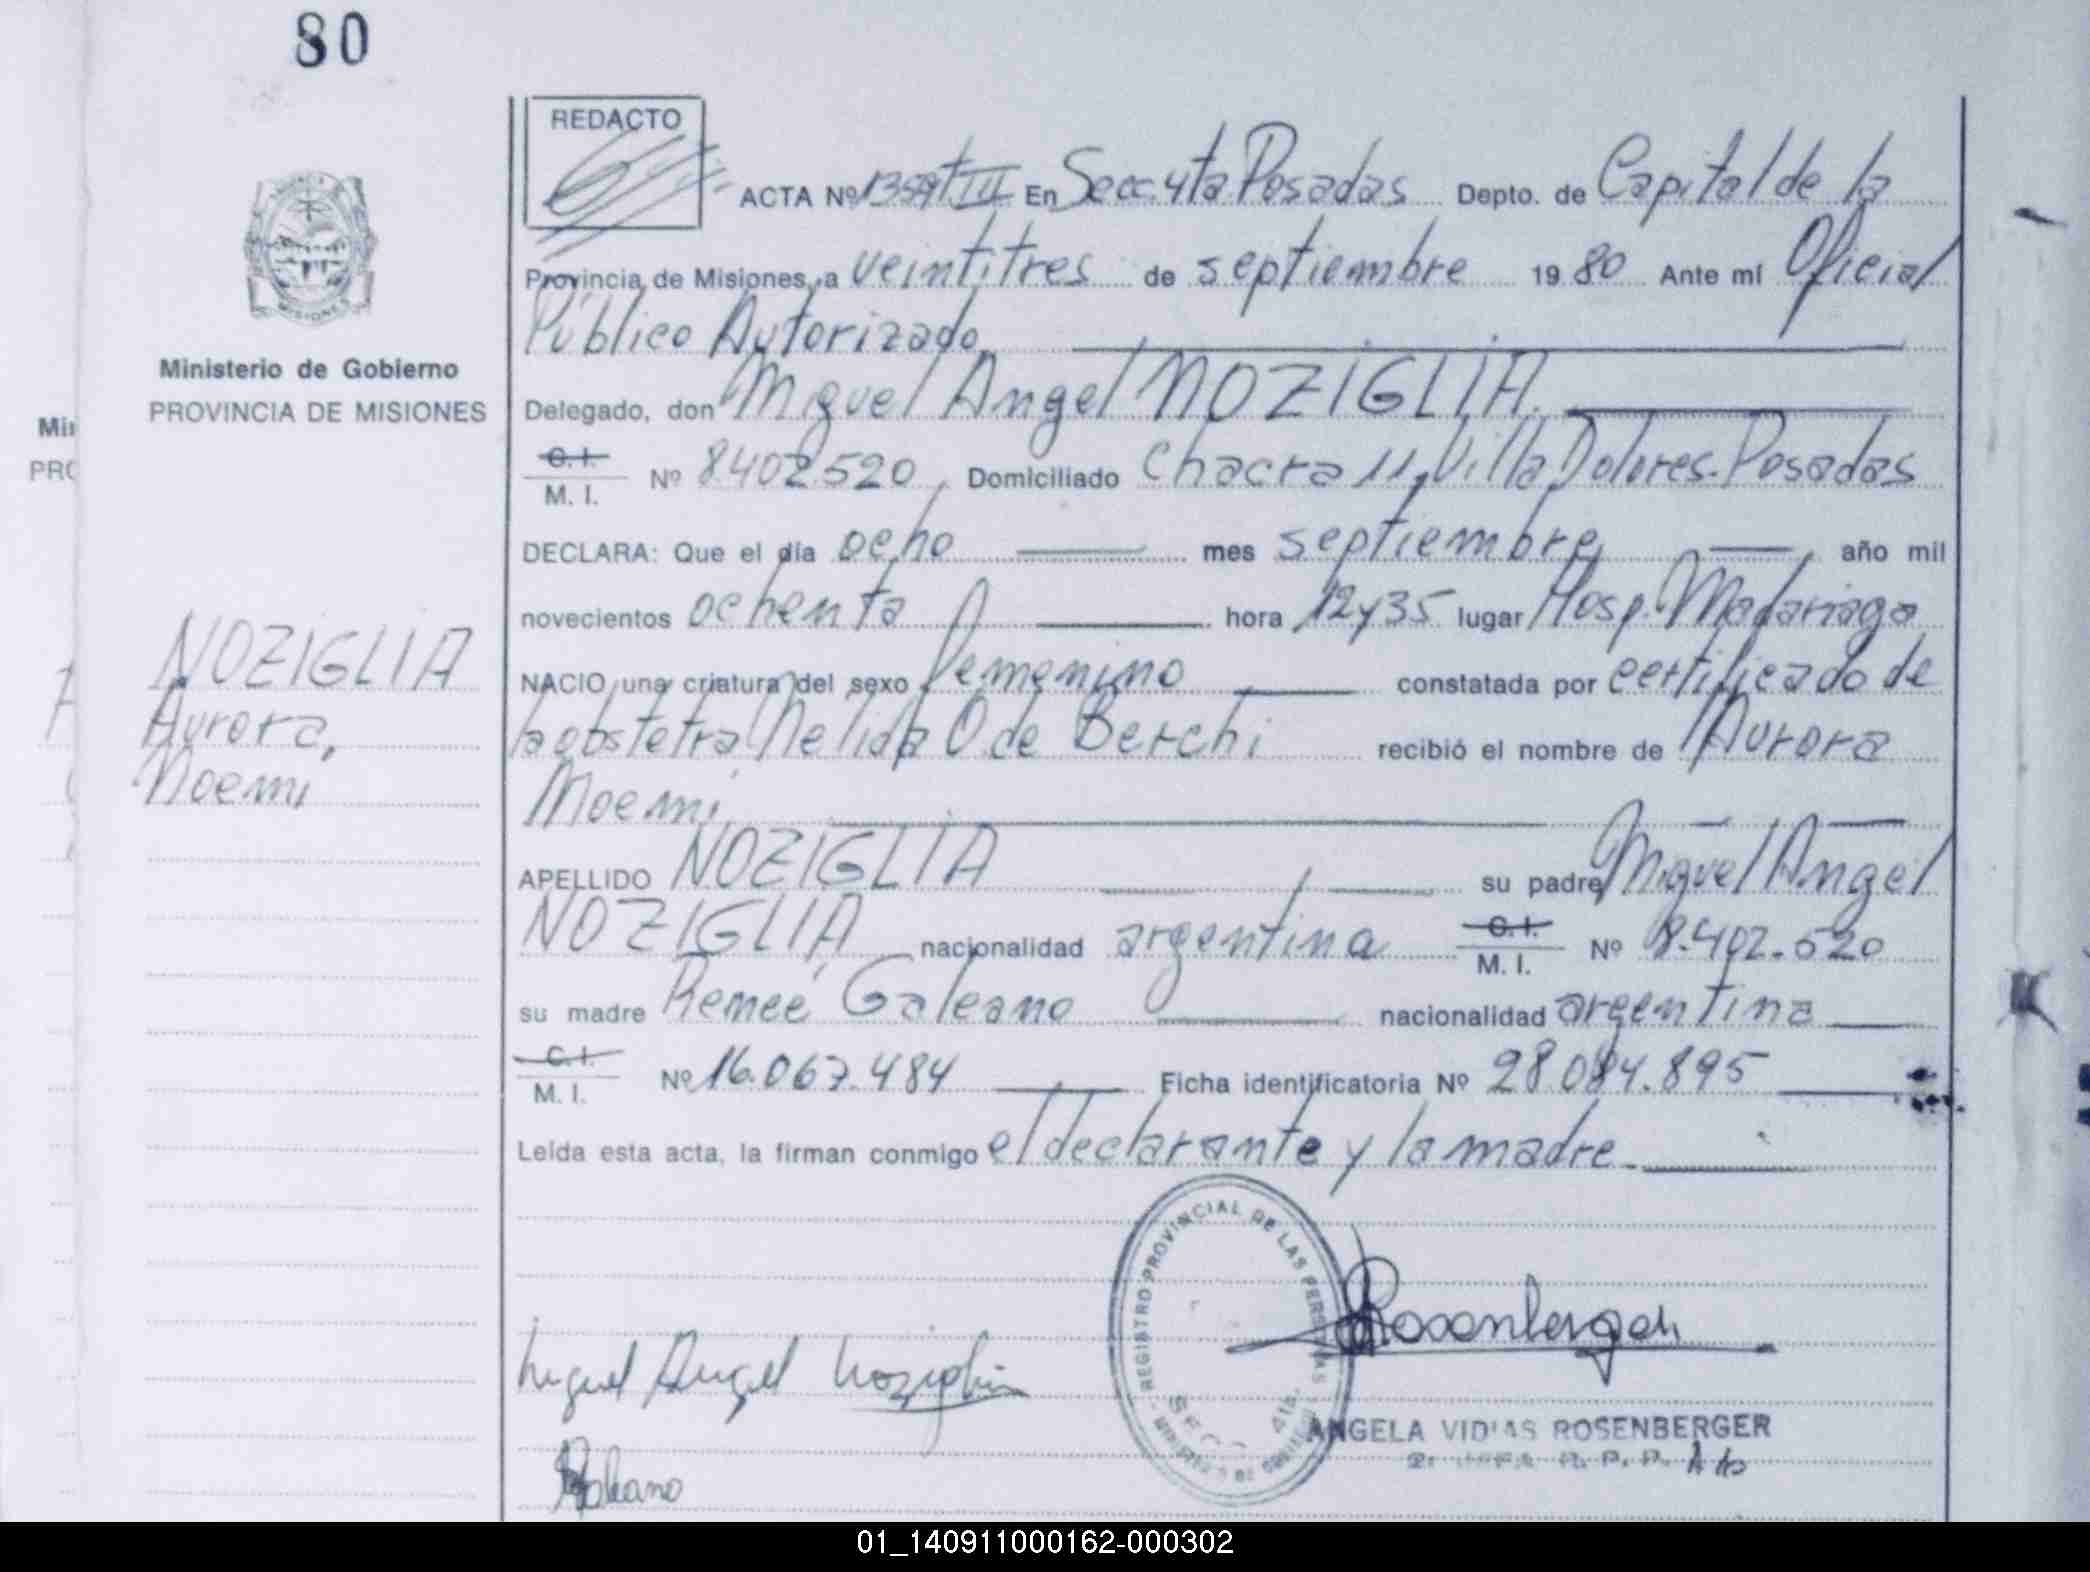 80
REDACTO
ACTA Nº 1359 t III En Secc. 4ta. Posadas Depto. de Capital de la
Provincia de Misiones, a veintitres de septiembre 1980 Ante mí Oficial
Público Autorizado
Delegado, don Miguel Angel NOZIGLIA.
C. I.
M. I. Nº 8.402.520, Domiciliado Chacra 11, Villa Dolores. Posadas
DECLARA: Que el día ocho mes septiembre año mil
novecientos ochenta hora 12y35 lugar Hosp. Madariaga
NACIO una criatura del sexo femenino constatada por certificado de
la obstetra Nelida O de Berchi recibió el nombre de Aurora
Noemi
APELLIDO NOZIGLIA su padre Miguel Angel
NOZIGLIA nacionalidad argentina C. I.
M. I. Nº 8.402.520
su madre Remeé Galeano nacionalidad argentina
C. I.
M. I. Nº 16.067.484 Ficha identificatoria Nº 28.084.895
Leída esta acta, la firman conmigo el declarante y la madre.
Ministerio de Gobierno
PROVINCIA DE MISIONES
NOZIGLIA
Aurora,
Noemi
Mi
PRO
REGISTRO PROVINCIAL DE LAS PERSONAS
Rosenberger
Miguel Angel Noziglia
ANGELA VIDIAS ROSENBERGER
Galeano
01_140911000162-000302